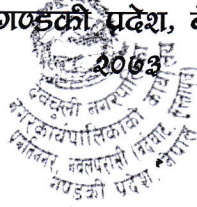 गण्डकी प्रदेश, न
देवचुली नगरपालिका
नगर कार्यपालिकाको कार्यालय
प्रगतिनगर, नवलपरासी
गण्डकी प्रदेश, नेपाल
२०७३